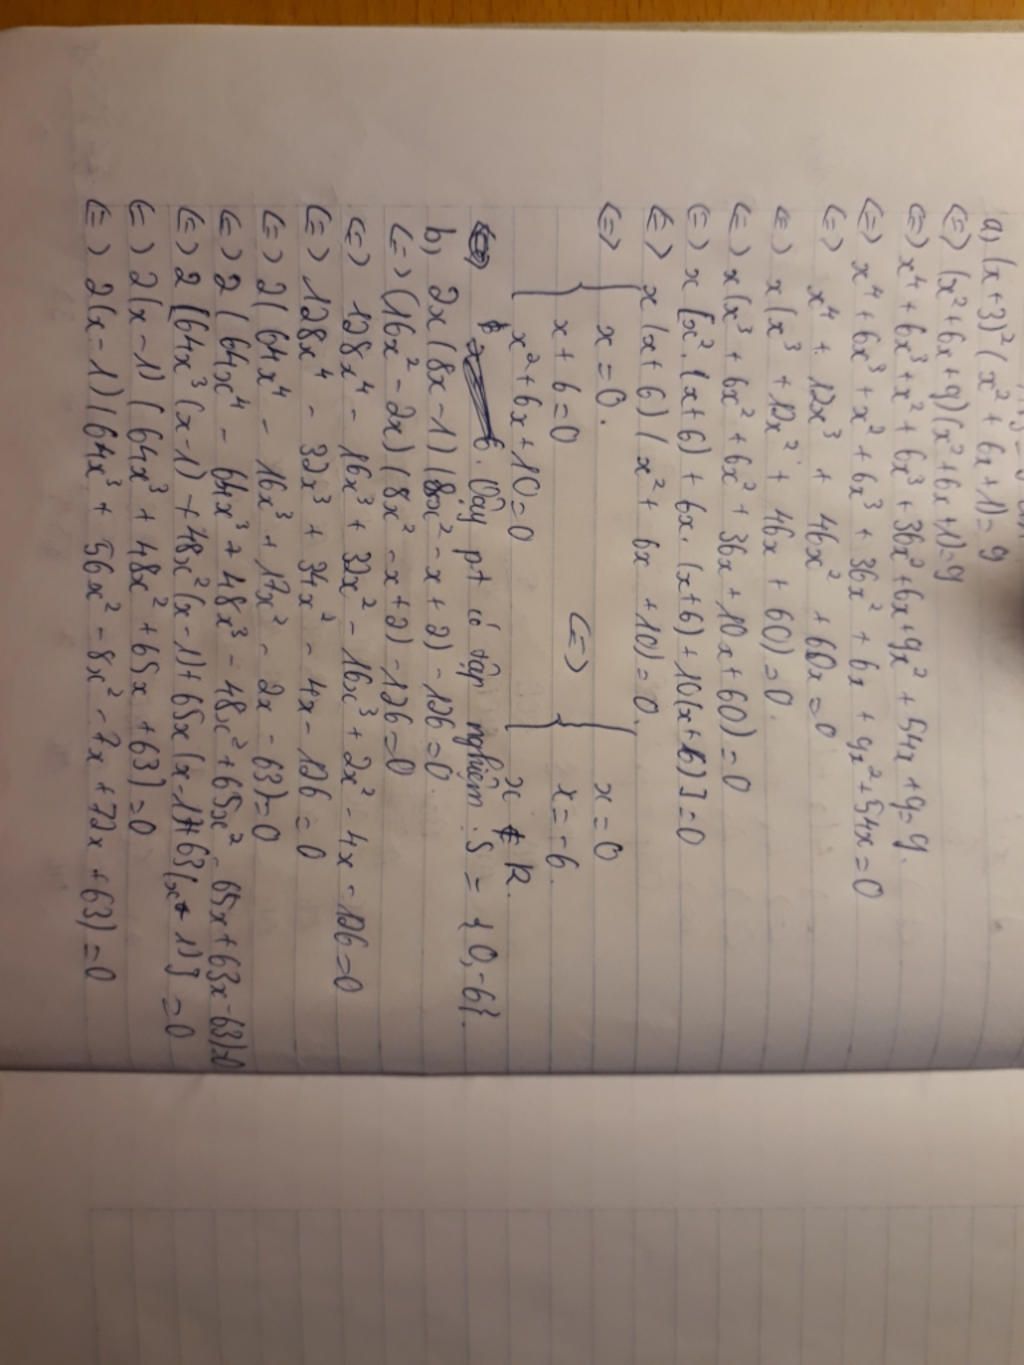 a) (x+3)²(x²+6x+1)=9
(=) (x²+6x+9)(x²+6x+1)=9
(=) x⁴+6x³+x²+6x³+36x²+6x+9x²+54x+9=9.
(=) x⁴+6x³+x²+6x³+36x²+6x+9x²+54x=0
(=) x⁴+12x³+46x²+60x=0
(=) x(x³+12x²+46x+60)=0.
(=) x(x³+6x²+6x²+36x+10x+60)=0
(=) x[x².(x+6)+6x.(x+6)+10(x+6)]=0
(=) x(x+6)(x²+6x+10)=0.
(=) { x=0. x=0
x+6=0 (=) { x=-6.
x²+6x+10=0 x ∉ R.
Vậy pt có tập nghiệm. S = {0,-6}.
b) 2x(8x-1)(8x²-x+2)-126=0.
(=) (16x²-2x)(8x²-x+2)-126=0
(=) 128x⁴-16x³+32x²-16x³+2x²-4x-126=0
(=) 128x⁴-32x³+34x²-4x-126=0
(=) 2(64x⁴-16x³+17x²-2x-63)=0
(=) 2(64x⁴-64x³+48x³-48x²+65x²-65x+63x-63)=0
(=) 2[64x³(x-1)+48x²(x-1)+65x(x-1)+63(x-1)]=0
(=) 2(x-1)(64x³+48x²+65x+63)=0
(=) 2(x-1)(64x³+56x²-8x²-7x+72x+63)=0